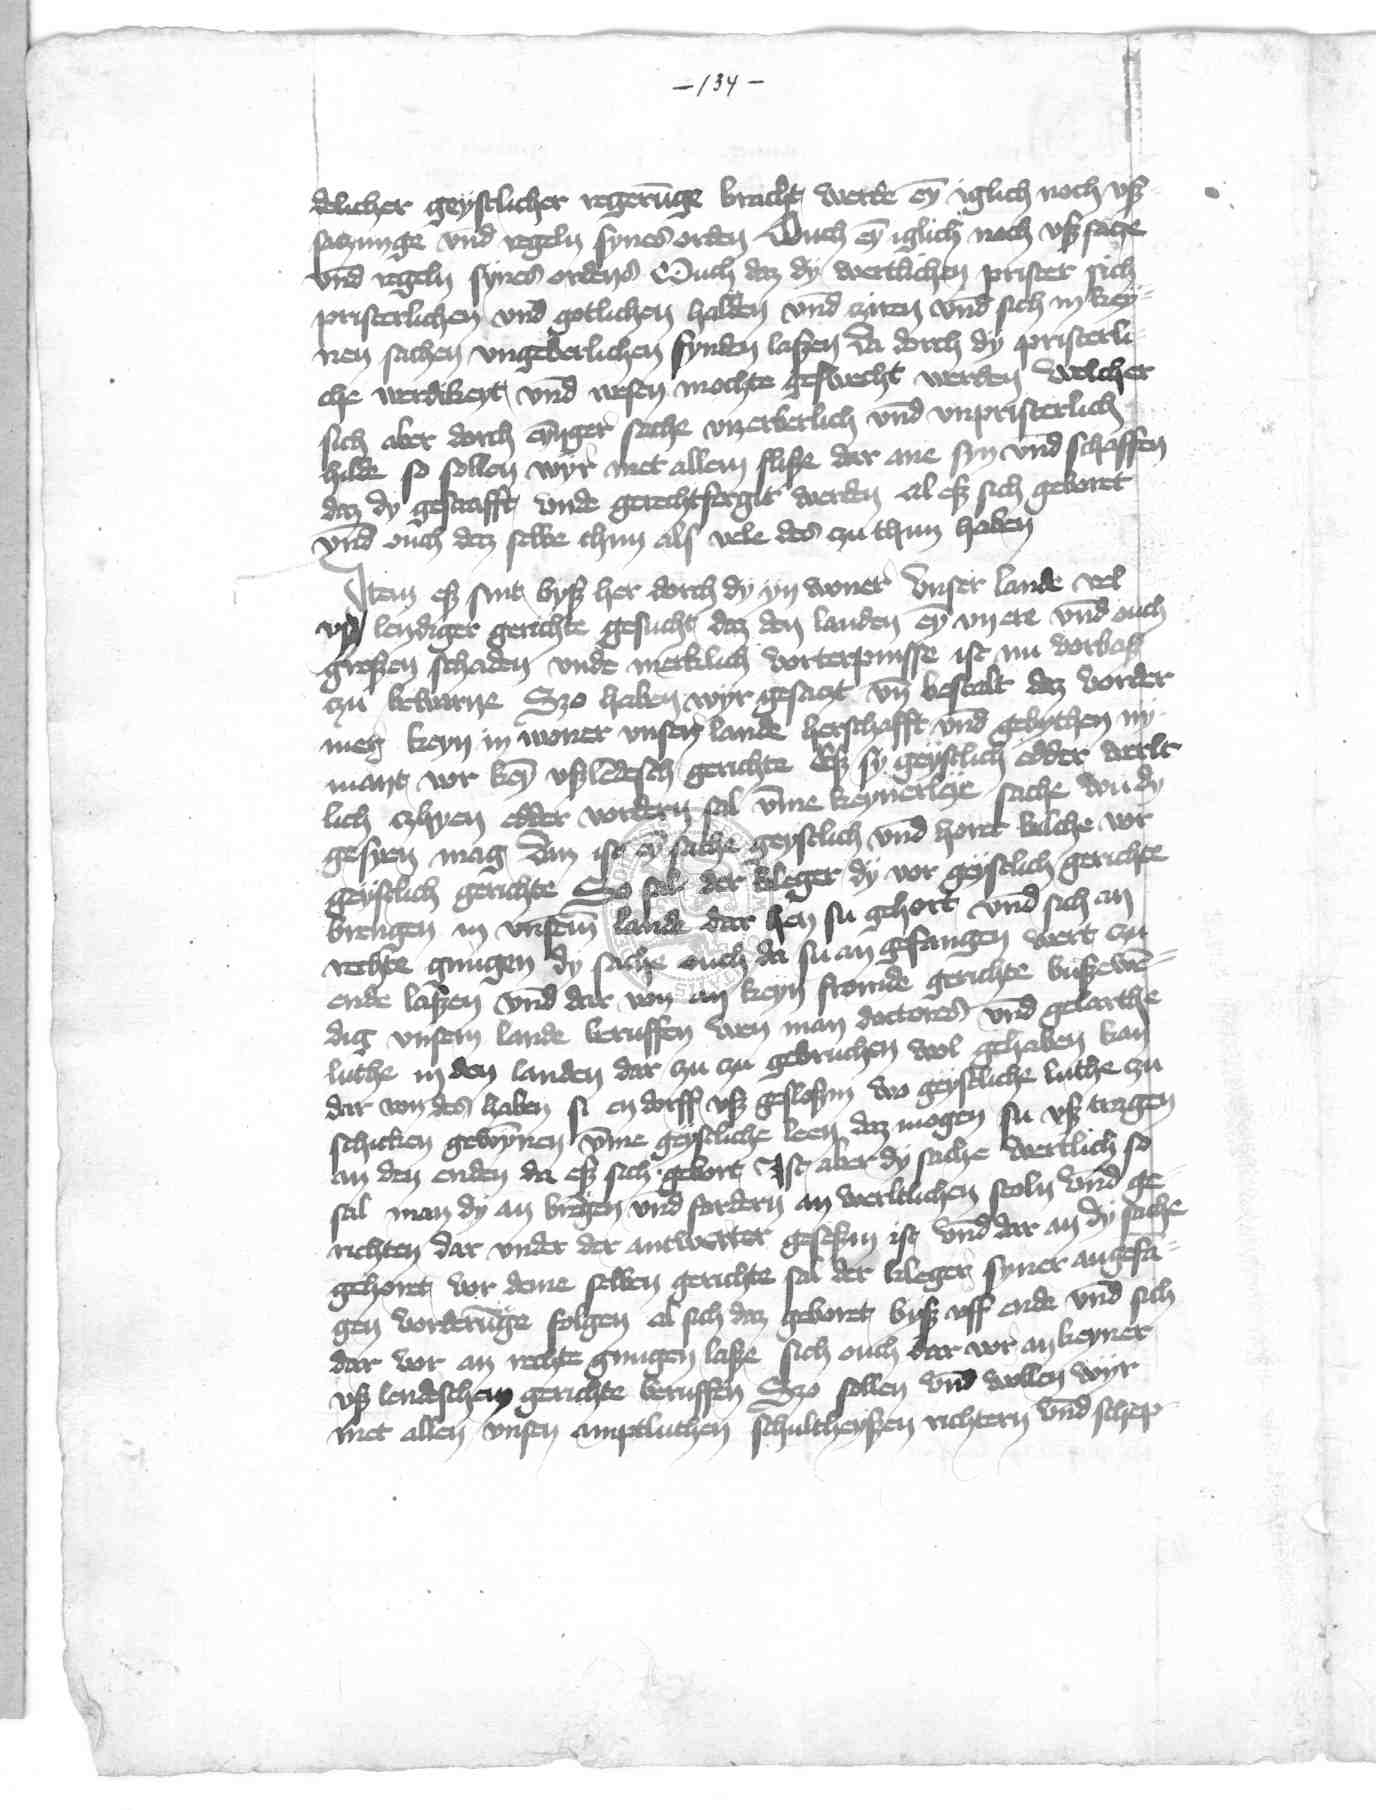 – 134 –
delicher geystlicher regerūge bracht werde eȳ iglich noch vß
satzunge vnd regeln synes orden Ouch eȳ iglich noch vß satze
vnd regeln synes ordens Ouch daz dy wertlichen prister sich
pristerlichen vnd gotlichen halden vnd ziren vnd sich in key-
nen sachen vngeberlichen fynden laßen da dorch dy pristerli-
che werdikeyt vnd wesen mochte geswecht werden Welcher
sich aber dorch eyniger sache vnerberlich vnd vnpristerlich
hilde so sollen wyr met allem fliße dar ane syn vnd schaffen
daz dy gestrafft vnde gerechtfergit werden al eß sich geboret
vnd ouch daz selbe thun als vele des zu thun haben
Item eß sint byß her dorch dy yn woner vnser lande vel
vß lendiger gerichte gesucht daz den landen eȳ vn ere vnd ouch
großen schaden vnde merklich vorterpnisse ist nu vorbaß
zu bewarne Szo haben wyr gesaczt vn̄ bestalt daz vorder
mer keyn in woner vnser lande herschafft vnd gebythen ny-
mant vor keȳ vßlēdesch gerichte Eß sy geystlich edder wertt
lich czhyen edder vordern sal vme keynerleye sache wu dy
gesyen mag Dan ist eȳ sache geystlich vnd horet billche vor
geystlich gerichte So sal der kleger dy vor geystlich gerichte
brengen in vnsem lande dar hen su gehort vnd sich an
rechte gnugen dy sache ouch da su an gefangen wert zu
ende laßen vnd dar von an keyn fromde gerichte bußewē-
dig vnsem lande beruffen wen man doctores vnd gelarthe
luthe in den landen dar zu zu gebruchen wol gehaben kan
dar von des haben si en dorff vß geslosßin wo geystliche luthe zu
schicken gewynen vme geystliche leen daz mogen su vß tragen
an den enden da eß sich gebort Ist aber dy sache wertlich so
sal man dy an brēgen vnd fordern an werltlichen stoln vnd ge-
richten dar vnder der antwerter geseßin ist vnd dar an dy sache
gehoret vor deme selben gerichte sal der kleger syner angefā-
gen vorderūge folgen al sich daz geboret byß vff ende vnd sich
dar vor an rechte gnugen laße sich ouch dar vor an keyner
vß lendeschem gerichte beruffen Szo sollen vnd wollen wyr
met allen vnsen amptluthen schultheyßen richtern vnd schep-